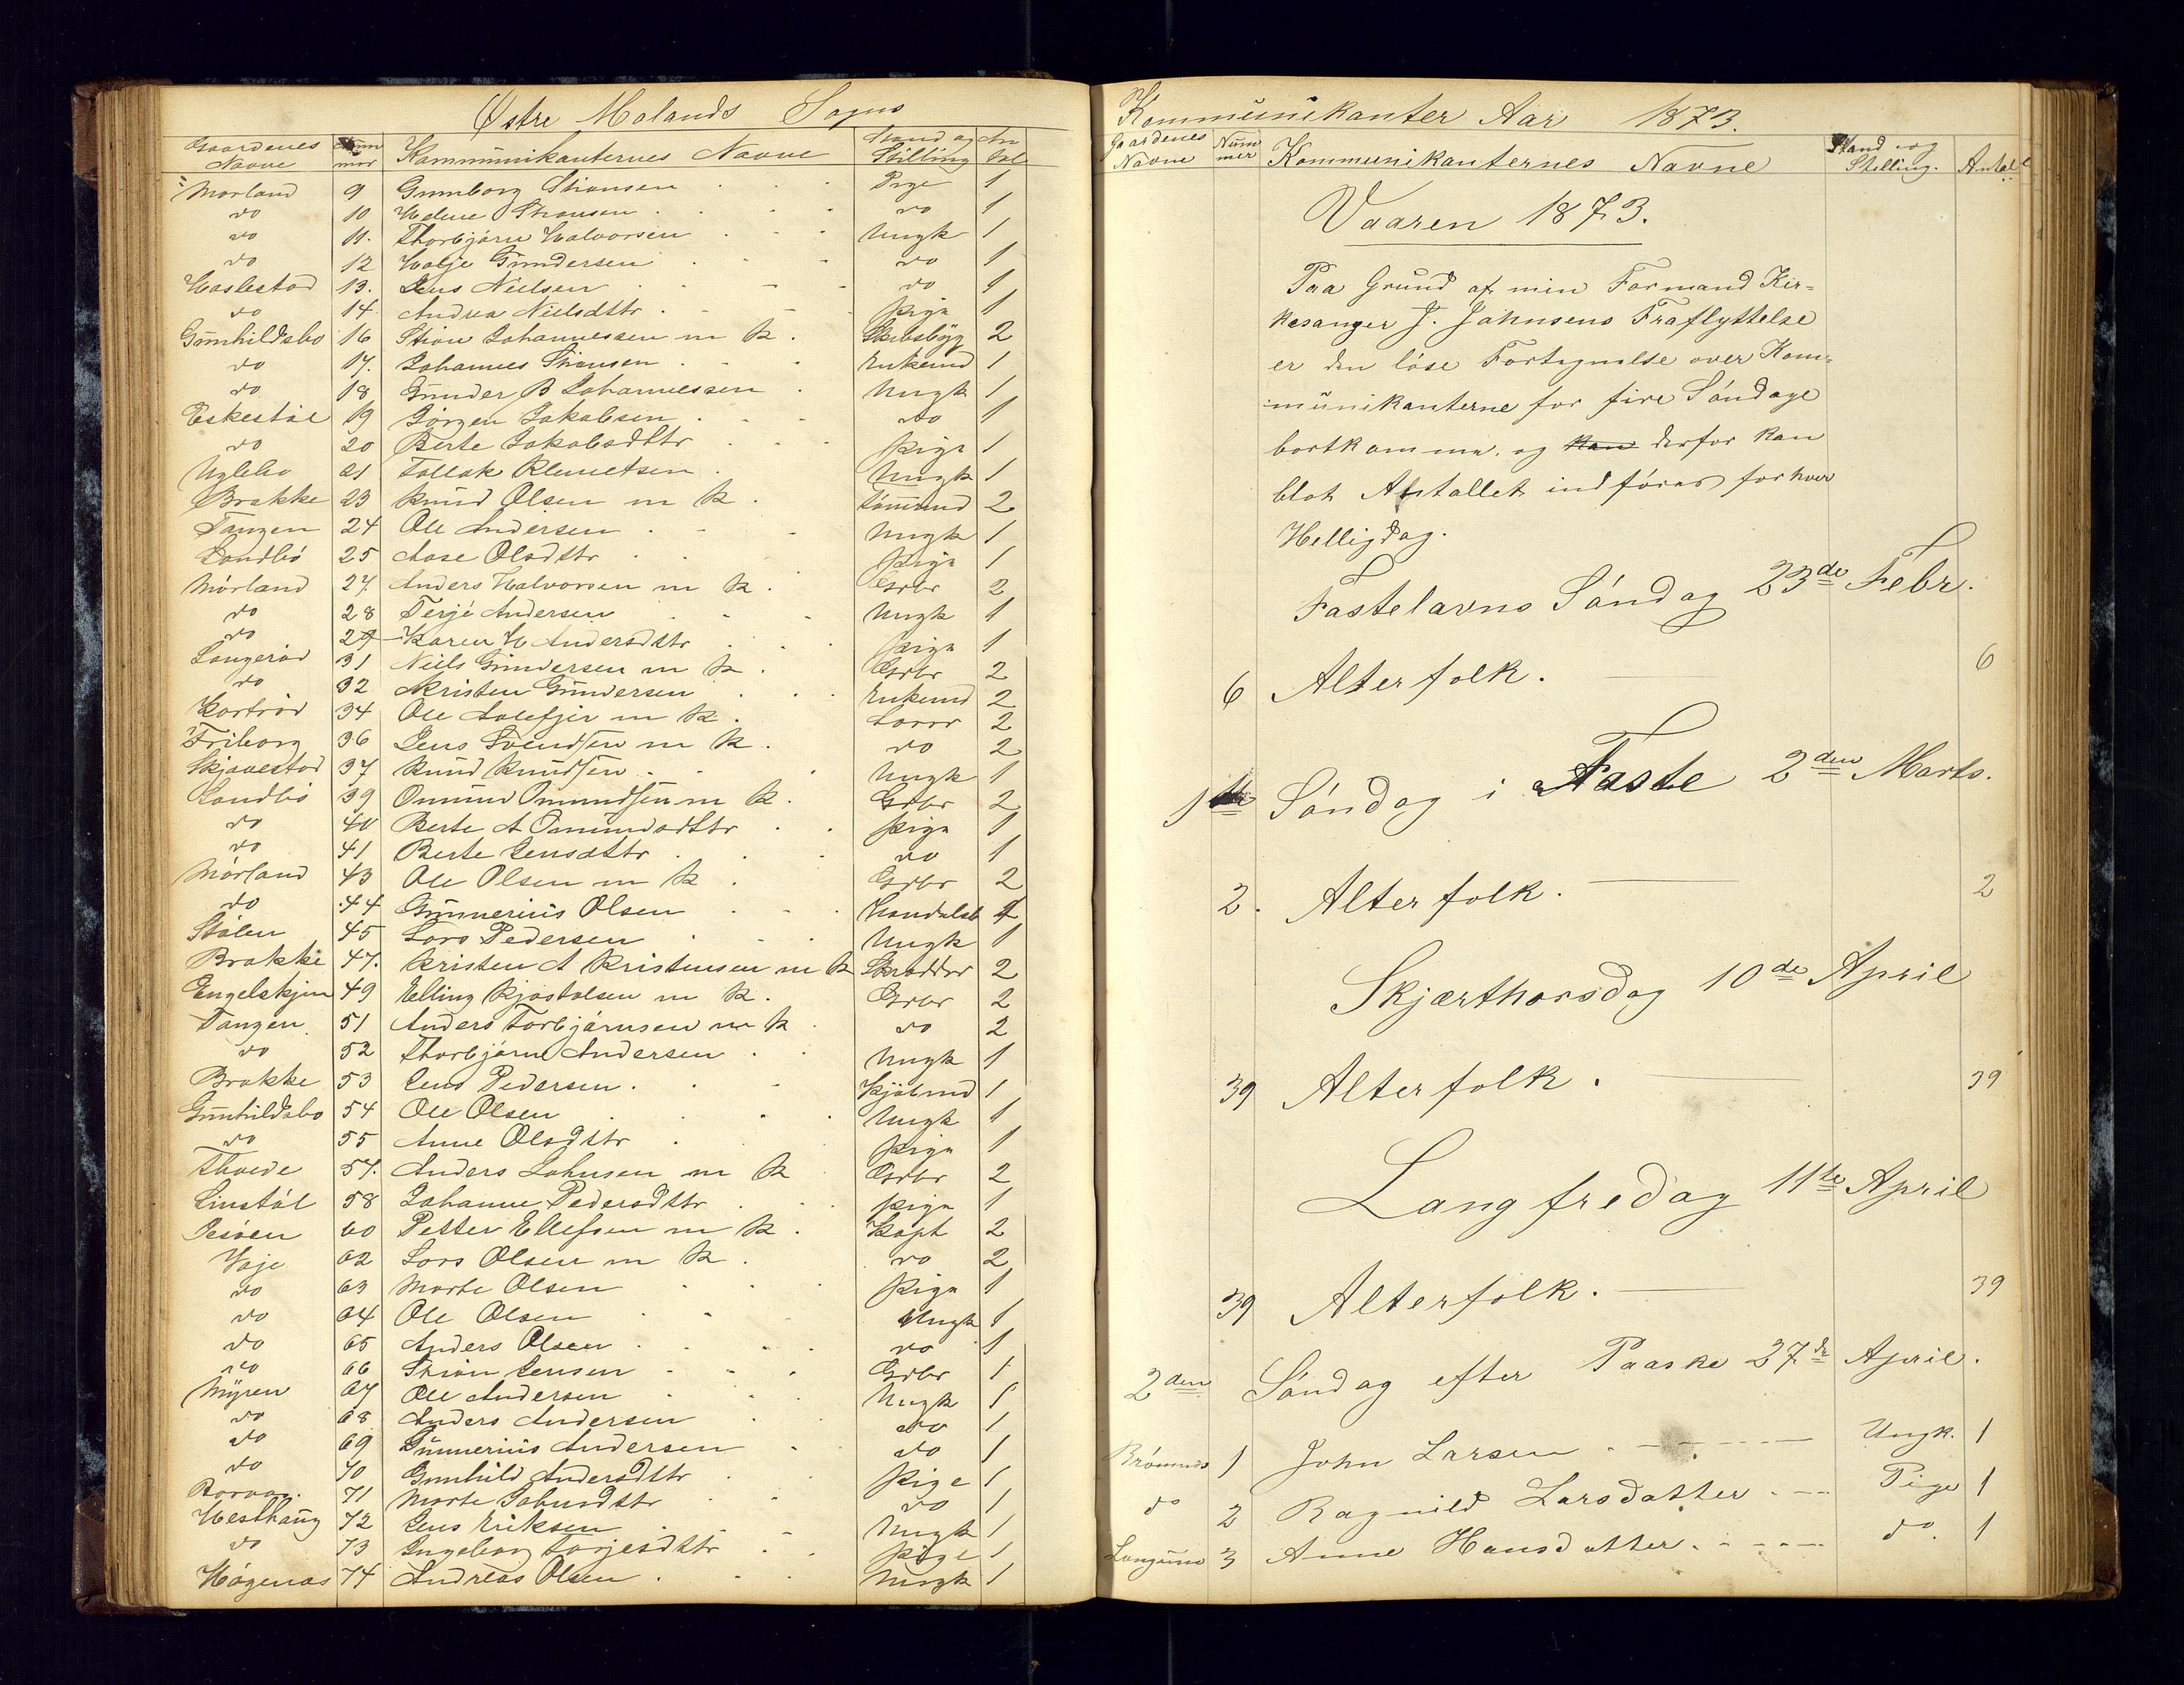 Østre Molands Sogns
Gaardenes Navne Num mer Kommunikanternes Navne Stand og Stilling An tal
Mørland 9 Gunnborg Stiansen Pige 1
do 10 Helene Stiansen do 1
do 11. Thorbjørn Halvorsen Ungk 1
do 12 Halje Gundersen do 1
Haslestad 13. Jens Nielsen do 1
do 14 Andrea Nielsdttr Pige 1
Gunhildsbo 16 Stian Johannessen m K. Skibsbyg 2
do 17. Johannes Stiansen Enkemd 1
do 18 Gunder B Johannessen Ungk 1
Eskestøl 19 Jørgen Jakobsen do 1
do 20 Berte Jakobsdttr Pige 1
Uglebo 21 Tallak Klemetsen Ungk 1
Brække 23 Knud Olsen m K. Tømmrmd 2
Tangen 24 Ole Andersen Ungk 1
Sandbø 25 Aase Olsdttr Pige 1
Mørland 27. Anders Halvorsen m K. Grbr 2
do 28 Terje Andersen Ungk 1
do 29 Karen H Andersdttr Pige 1
Longerød 31 Niels Gundersen m K. Grbr 2
do 32 Kristen Gundersen Enkemd 2
34 Ole m K. 2
Friborg 36 Jens Svendsen m K. do 2
Skjævestad 37 Knud Knudsen Ungk 1
Sandbø 39 Omund Omundsen m K. Grbr 2
do 40 Berte A Omundsdttr Pige 1
do 41 Berte Jensdttr do 1
Mørland 43 Ole Olsen m K. Grbr 2
do 44 Gunnerius Olsen Handelsb 1
Stølen 45 Lars Pedersen Ungk 1
Brække 47. Kristen A Kristensen m K Skrædder 2
Engelskjøn 49 Elling Kjøstolsen m K. Grbr 2
Tangen 51 Anders Torbjørnsen m K do 2
do 52 Thorbjørn Andersen Ungk 1
Brække 53 Jens Pedersen Kjøbmd 1
Gunhildsbo 54 Ole Olsen Ungk 1
do 55 Anne Olsdttr Pige 1
Thvede 57. Anders Johnsen m K Grbr 2
Limstøl 58 Johanne Pedersdttr Pige 1
60 Petter Ellefsen m K. Kapt 2
Vaje 62 Lars Olsen m K. do 2
do 63 Marte Olsen Pige 1
do 64 Ole Olsen Ungk 1
do 65 Anders Olsen do 1
do 66 Stian Jensen Grbr 1
Myren 67 Ole Andersen Ungk 1
do 68 Anders Andersen do 1
do 69 Gunnerius Andersen do 1
do 70 Gunhild Andersdttr Pige 1
71 Marte Johnsdttr do 1
Vesthaug 72 Jens Eriksen Ungk 1
do 73 Ingeborg Torjesdttr Pige 1
Høgenæs 74 Andreas Olsen Ungk 1
Kommunikanter Aar 1873.
Gaardenes Navne Num mer Kommunikanternes Navne Stand og Stilling. Antal
Vaaren 1873.
Paa Grund af min Formand Kir-
kesanger J. Johnsens Fraflyttelse
er den løse Fortegnelse over Kom-
munikanterne for fire Søndage
bortkomme. og kan derfor kan
blot Antallet indføres for hver
Helligdag.
Fastelavns Søndag 23de Febr.
6 Alterfolk. 6
1ste Søndag i Faste 2den Marts.
2. Alterfolk. 2
Skjærthorsdag 10de April
39 Alterfolk. 39
Langfredag 11te April
39 Alterfolk. 39
2den Søndag efter Paaske 27de April.
Brømnes 1 John Larsen Ungk. 1
do 2 Ragnild Larsdatter Pige 1
Longum 3 Anne Hansdatter do. 1